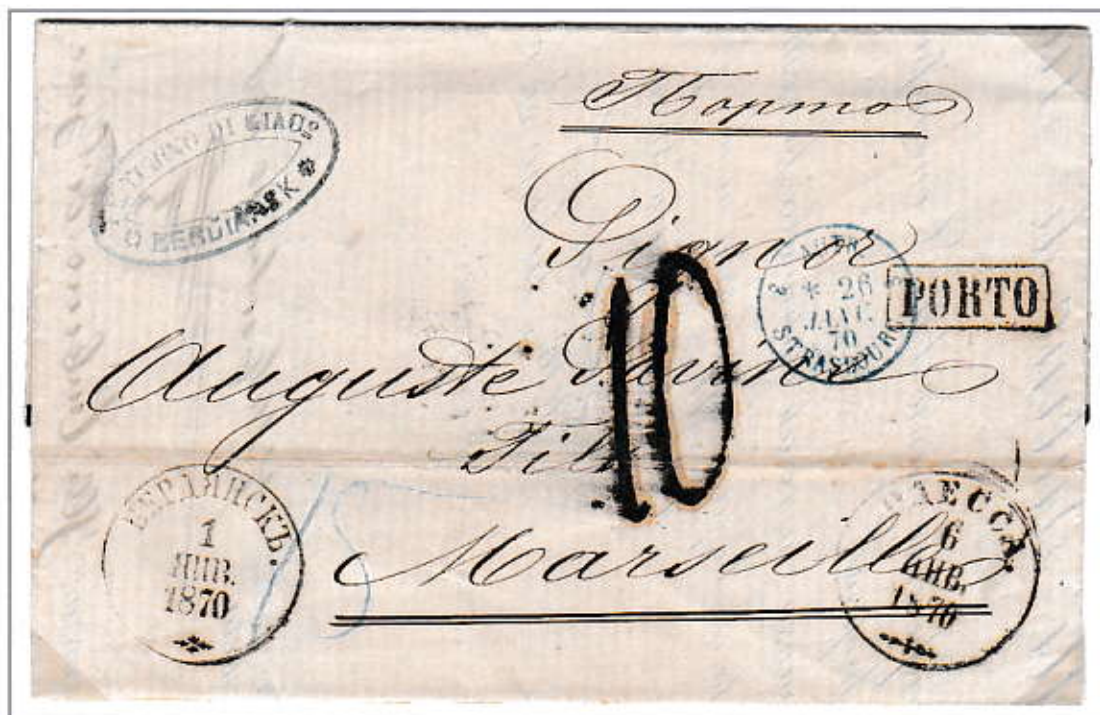 Порто
DI
BERDIANSK
Signor
AUTR.
2 * 26 2
JANV.
70
STRASBOURG
PORTO
10
Auguste
Fils
Marseille
БЕРДЯНСКЪ.
1
ЯНВ.
1870
ОДЕССА.
6
ЯНВ.
1870